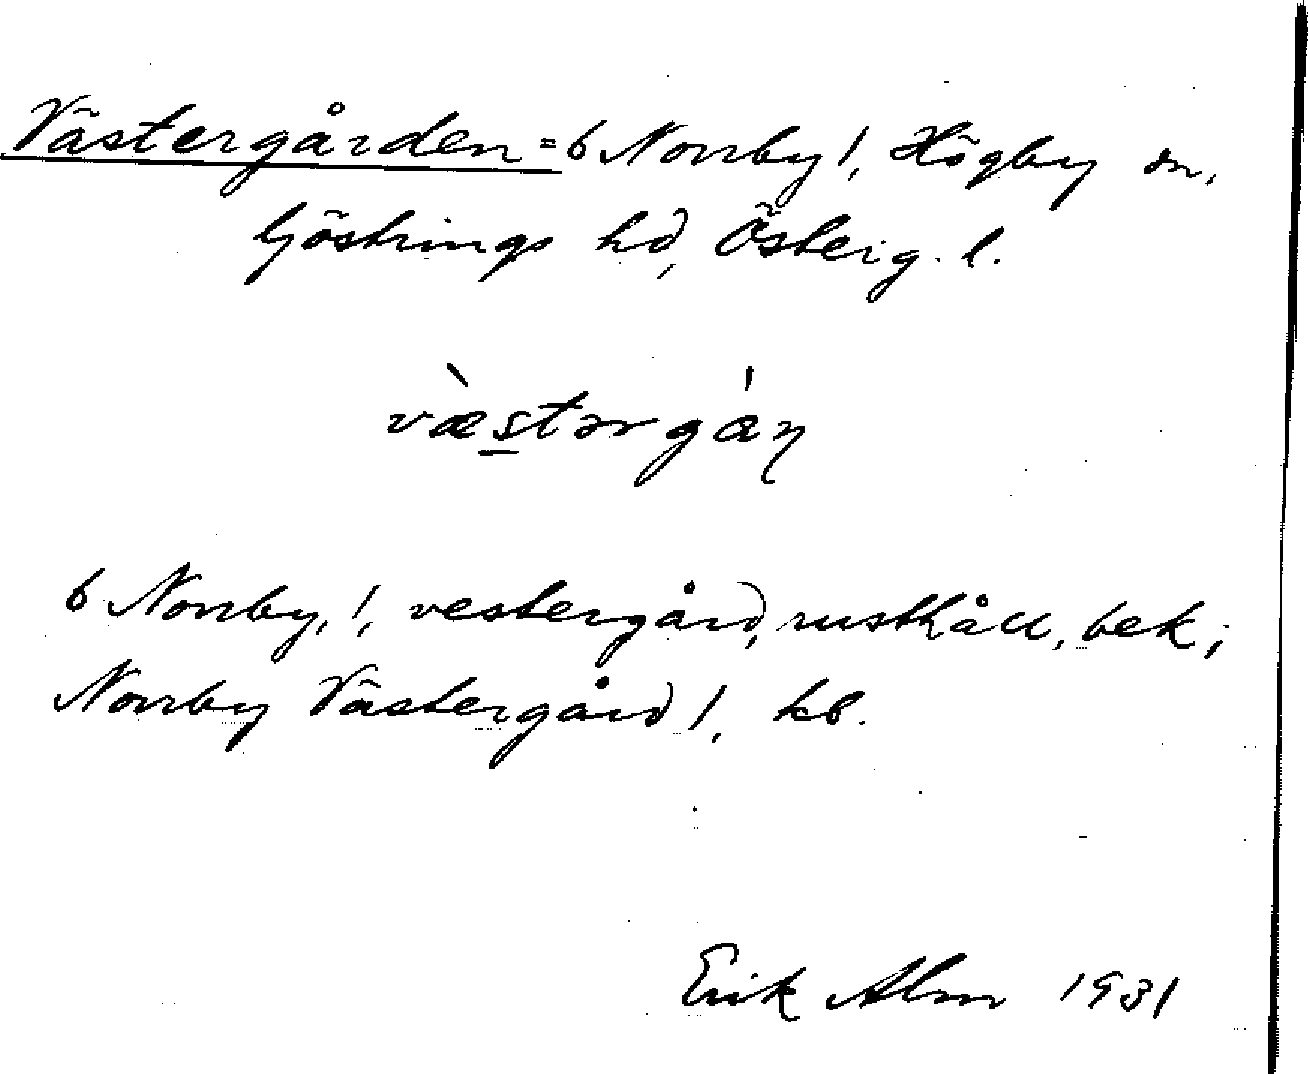 Västergården = 6 Norrby 1, Högby sn,
Göstrings hd, Österg. l.
væ̀stərgán
6 Norrby, 1, vestergård, rusthåll, bek;
Norrby Västergård 1, kb.
Erik Alm 1931